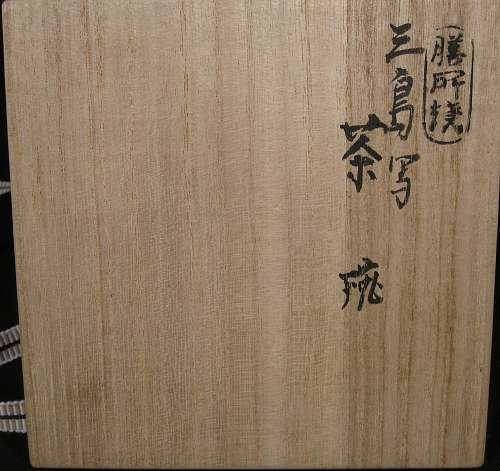 膳所焼
三島写
茶碗